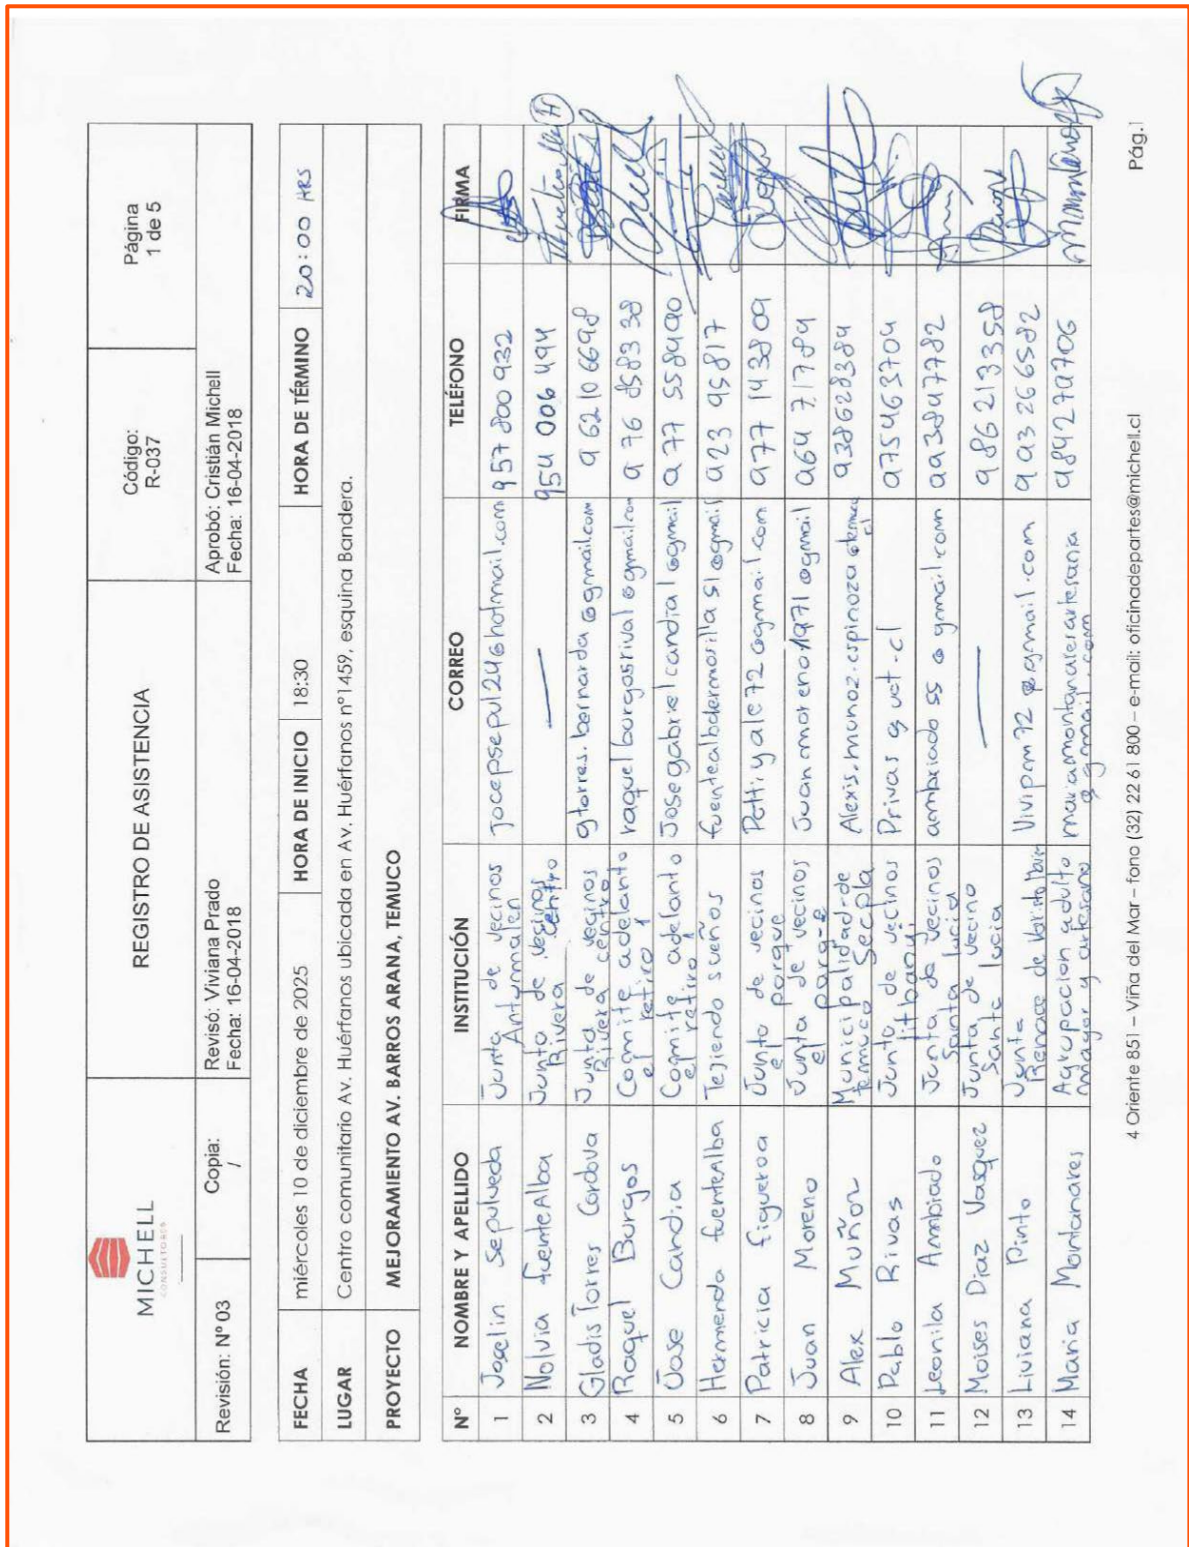 MICHELL
CONSULTORES
REGISTRO DE ASISTENCIA
Código:
R-037
Página
1 de 5
Revisión: Nº 03
Copia:
/
Revisó: Viviana Prado
Fecha: 16-04-2018
Aprobó: Cristián Michell
Fecha: 16-04-2018
FECHA miércoles 10 de diciembre de 2025 HORA DE INICIO 18:30 HORA DE TÉRMINO 20:00 HRS
LUGAR Centro comunitario Av. Huérfanos ubicada en Av. Huérfanos nº1459, esquina Bandera.
PROYECTO MEJORAMIENTO AV. BARROS ARANA, TEMUCO
Nº NOMBRE Y APELLIDO INSTITUCIÓN CORREO TELÉFONO FIRMA
1 Joselin Sepulveda Junta de vecinos Antumalen Jocepsepul246hotmail.com 957800932
2 Nolvia fuenteAlba Junta de vecinos Rivera centro — 954 006 494
3 Gladis Torres Cordova Junta de vecinos Rivera centro gtorres.bernarda@gmail.com 9 6210 6698
4 Raquel Burgos Comite adelanto el retiro raquelburgosrival@gmail.com 9 76 858338
5 Jose Candia Comite adelanto el retiro Josegabrielcandia1@gmail 9 77 558490
6 Hermenda fuenteAlba Tejiendo sueños fuentealbahermosilla51@gmail 923 95817
7 Patricia Figueroa Junta de vecinos el parque Pattiyale72@gmail.com 977 143809
8 Juan Moreno Junta de vecinos el parque Juanmoreno1971@gmail 964 71789
9 Alex Muñoz Municipalidad de temuco Secpla Alexis.munoz.espinoza@temuco.cl 938628384
10 Pablo Rivas Junta de vecinos Privas@uct.cl 975463704
11 Leonila Ambiado Junta de vecinos Santa lucia ambiado55@gmail.com 993847782
12 Moises Diaz Vasquez Junta de vecino Santa lucia — 986213358
13 Liviana Pinto Junta Vivipm72@gmail.com 993266582
14 Maria Montanares Agrupacion adulto mayor y artesano mariamontanaresartesania@gmail.com 984279706
4 Oriente 851 – Viña del Mar – fono (32) 22 61 800 – e-mail: oficinadepartes@michell.cl
Pág.1